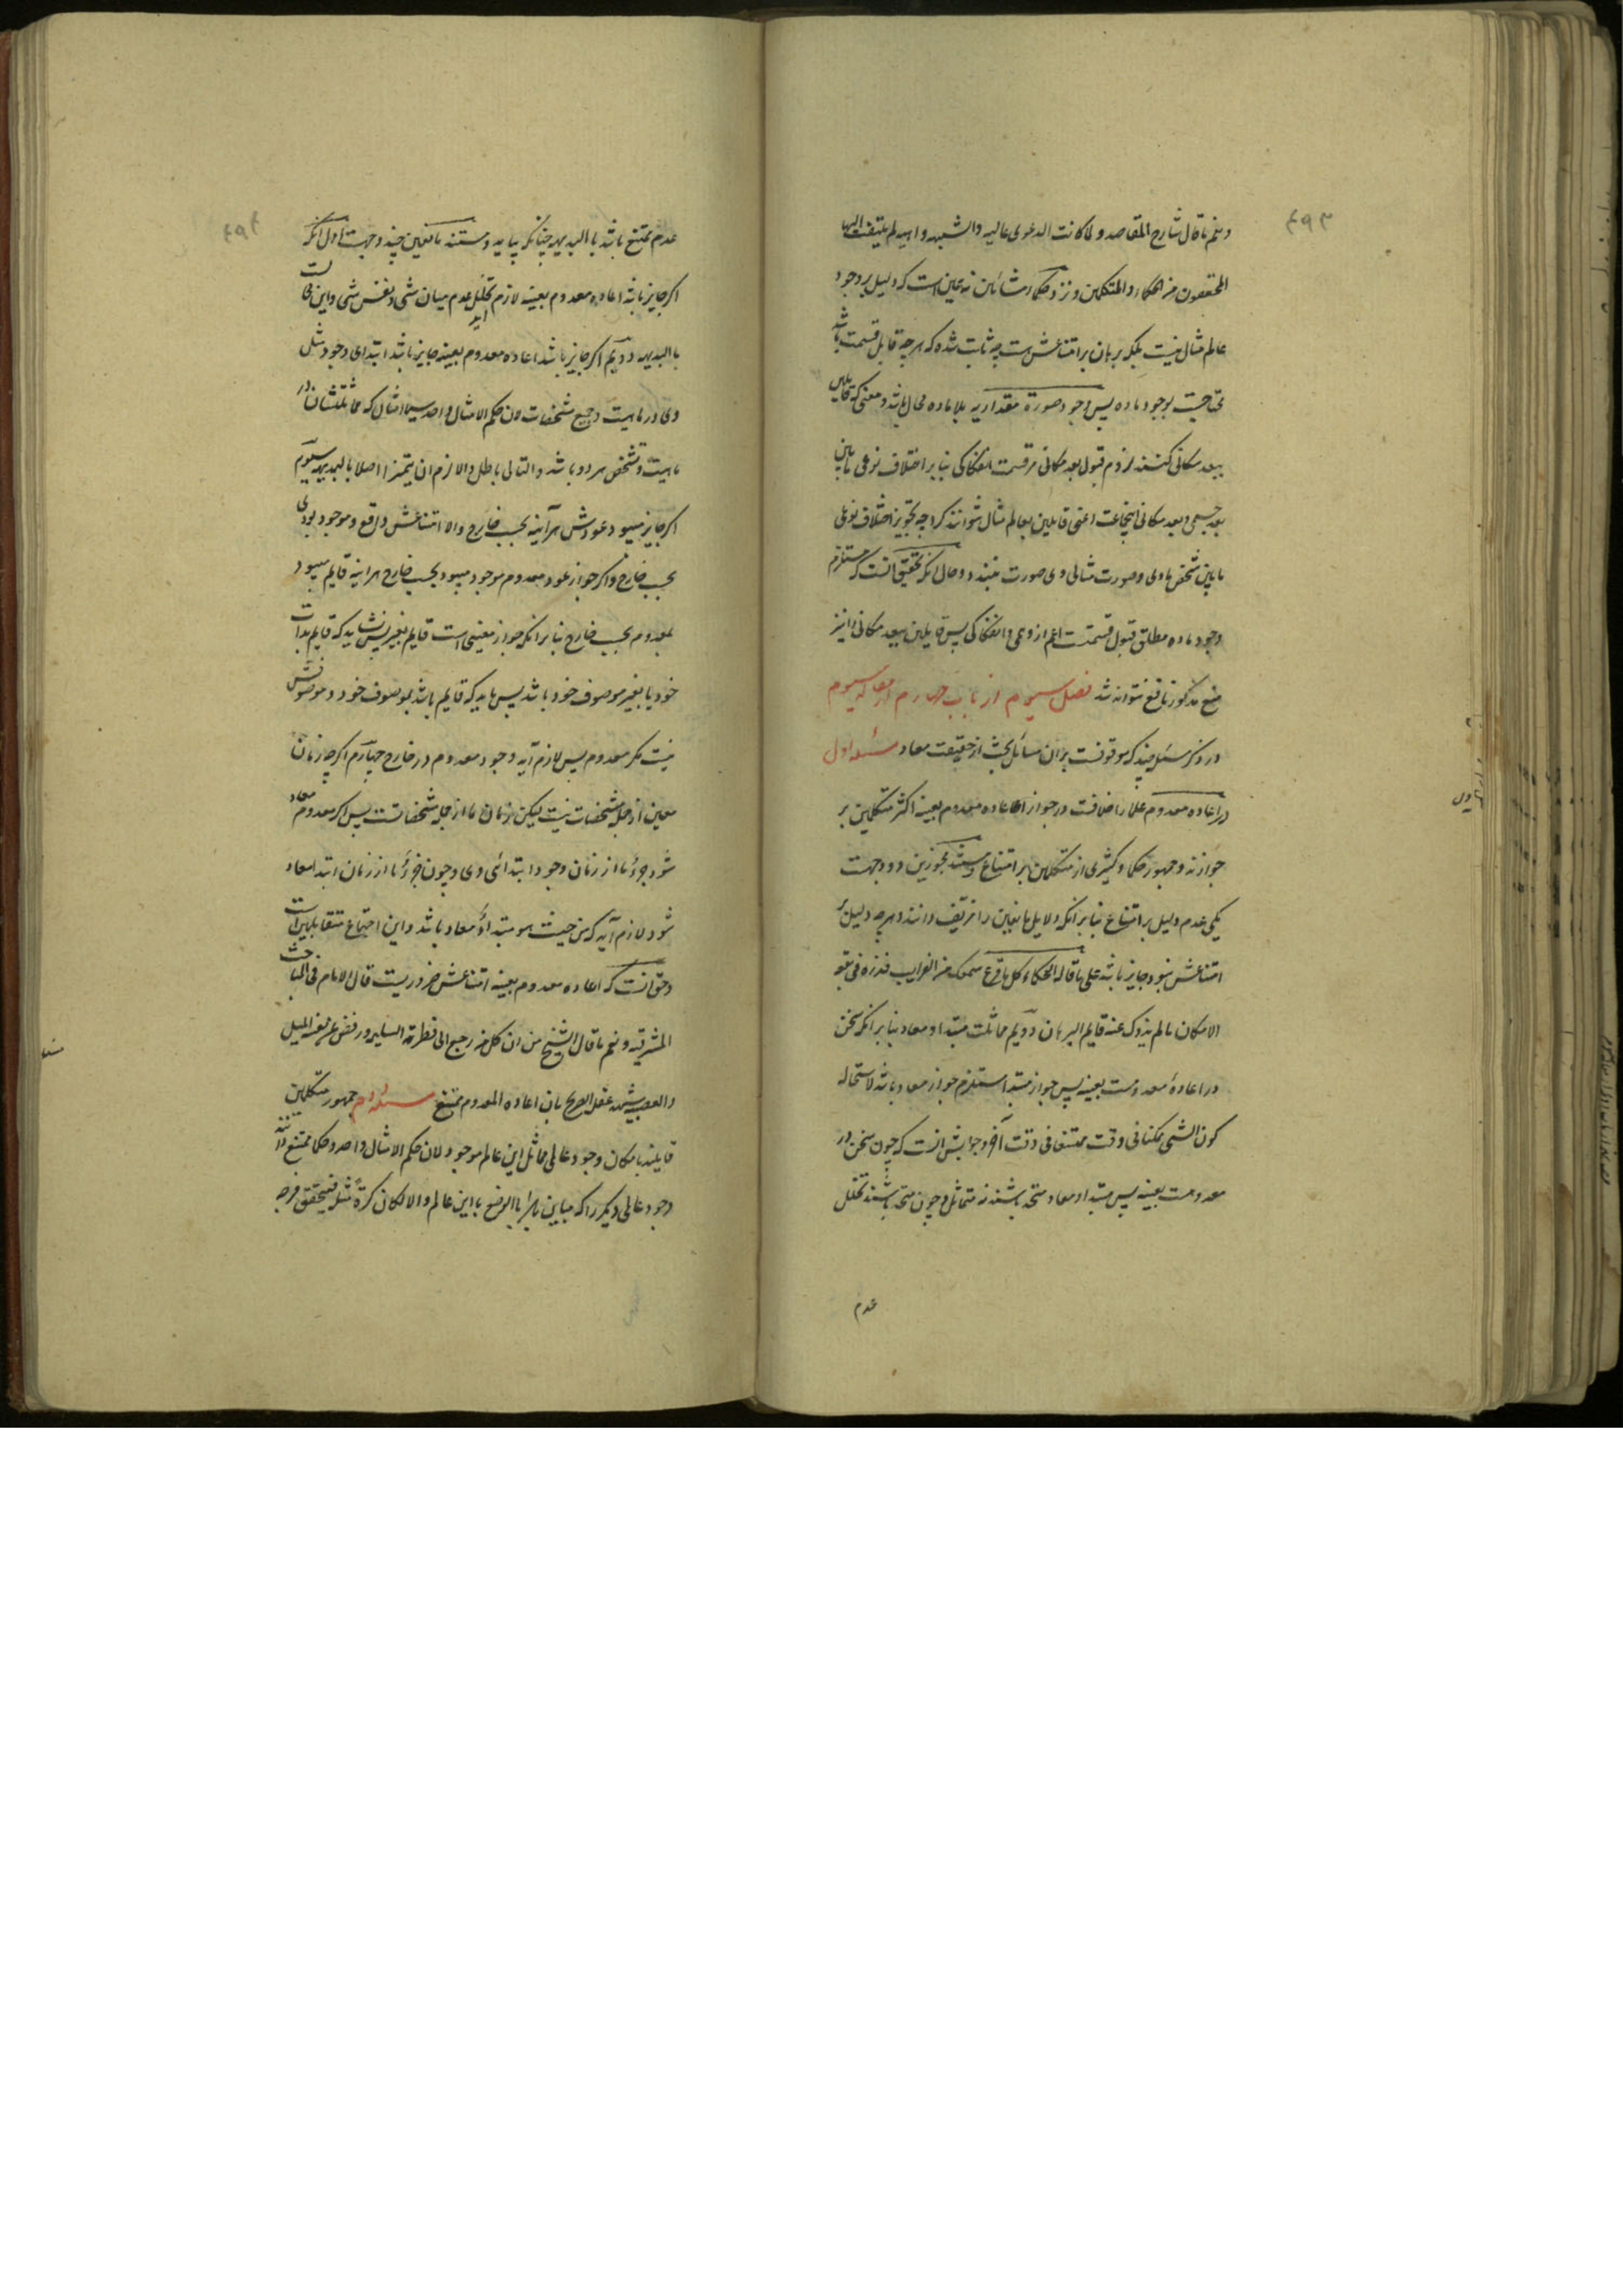 ۴۹۳
و نعم ما قال شارح المقاصد و لما کانت الدعوی عالیه والشبهه واهیه لم یلتفت الیها
المحققون من الحکماء و المتکلمین و نزد حکماء مشائین نه همین است که دلیل بر وجود
عالم مثال نیست بلکه برهان بر امتناعش هست چه ثابت شده که هر چه قابل قسمت باشد
محتاجست بوجود ماده پس وجود صورة مقداریه بلا ماده محال باشد و معنی که قایلین
ببعد مکانی کنند لزوم قبول بعد مکانی مر قسمت انفکاکی بنا بر اختلاف نوعی مابین
بعد جسمی و بعد مکانی اینجاعت اعنی قایلین بعالم مثال نتوانند کرد چه تجویز اختلاف نوعی
مابین شخص مادی و صورت مثالی وی صورت نبندد و حال آنکه تحقیق آنست که مستلزم
وجود ماده مطلق قبول قسمتست اعم از وهمی و انفکاکی پس قایلین ببعد مکانی را نیز
منع مذکور نافع نتواند شد فصل سیوم از باب چهارم از مقاله سیوم
در ذکر مسئلی چند که موقوفست بر آن مسائل بحث از حقیقت معاد مسئله اول
در اعاده معدوم علما را خلافست در جواز اعاده معدوم بعینه اکثر متکلمین بر
جوازند و جمهور حکما و کثیری از متکلمین بر امتناع و مستند مجوزین دو وجهست
یکی عدم دلیل بر امتناع بنا بر آنکه دلایل مانعین را مزیف دانند و هر چه دلیل بر
امتناعش نبود جایز باشد علی ما قاله الحکماء کل ما قرع سمعک من الغرایب فذره فی بقعه
الامکان ما لم یذدک عنه قایم البرهان دویم مماثلت مبتدا و معاد بنا بر آنکه سخن
در اعادهٔ معدومست بعینه پس جواز مبتدا مستلزم جواز معاد باشد لاستحاله
کون الشی ممکنا فی وقت ممتنعا فی وقت آخر و جوابش آنست که چون سخن در
معدومست بعینه پس مبتدا و معاد متحد باشند نه متماثل و چون متحد باشند تخلل
عدم
۴۹۴
عدم ممتنع باشد بالبدیهه چنانکه بیاید و مستند مانعین چند وجهست اول آنکه
اگر جایز باشد اعاده معدوم بعینه لازم آید تخلل عدم میان شی و نفس شی و این محالست
بالبدیهه دویم اگر جایز باشد اعاده معدوم بعینه جایز باشد ابتدای وجود مثل
وی در ماهیت و جمیع مشخصات لان حکم الامثال واحد سیما امثال که مماثلتشان در
ماهیت و تشخص هر دو باشد و التالی باطل و الا لزم ان یتمیزا اصلا بالبدیهه سیوم
اگر جایز میبود عودش هر آینه بحسب خارج والا امتناعش واقع و موجود بودی
بحسب خارج و اگر جواز عود معدوم موجود میبود بحسب خارج هر آینه قایم میبود
بمعدوم بحسب خارج بنا بر آنکه جواز معنیی است قایم بغیر پس نشاید که قایم بذات
خود یا بغیر موصوف خود باشد پس باید که قایم باشد بموصوف خود و موصوفش
نیست مگر معدوم پس لازم آید وجود معدوم در خارج چهارم اگر چه زمان
معین از جمله مشخصات نیست لیکن زمان ما از جمله مشخصاتست پس اگر معدوم معاد
شود جزء ما از زمان وجود ابتدائی وی و چون جزء ما از زمان ابتدا معاد
شود لازم آید که من حیث هو مبتداء معاد باشد و این اجتماع متقابلین است
و حق آنست که اعاده معدوم بعینه امتناعش ضروریست قال الامام فی المباحث
المشرقیه و نعم ما قال الشیخ من ان کل من رجع الی فطرته السلیمه و رفض عن نفسه المیل
والعصبیه شهد عقله الصریح بان اعاده المعدوم ممتنع مسئله دوم جمهور متکلمین
قایلند بامکان وجود عالمی مماثل این عالم موجود لان حکم الامثال واحد و حکما ممتنع دانند
وجود عالمی دیگر را که مباین باشد بالوضع با این عالم والا لکان کرةً مثله فیتحقق فرجه